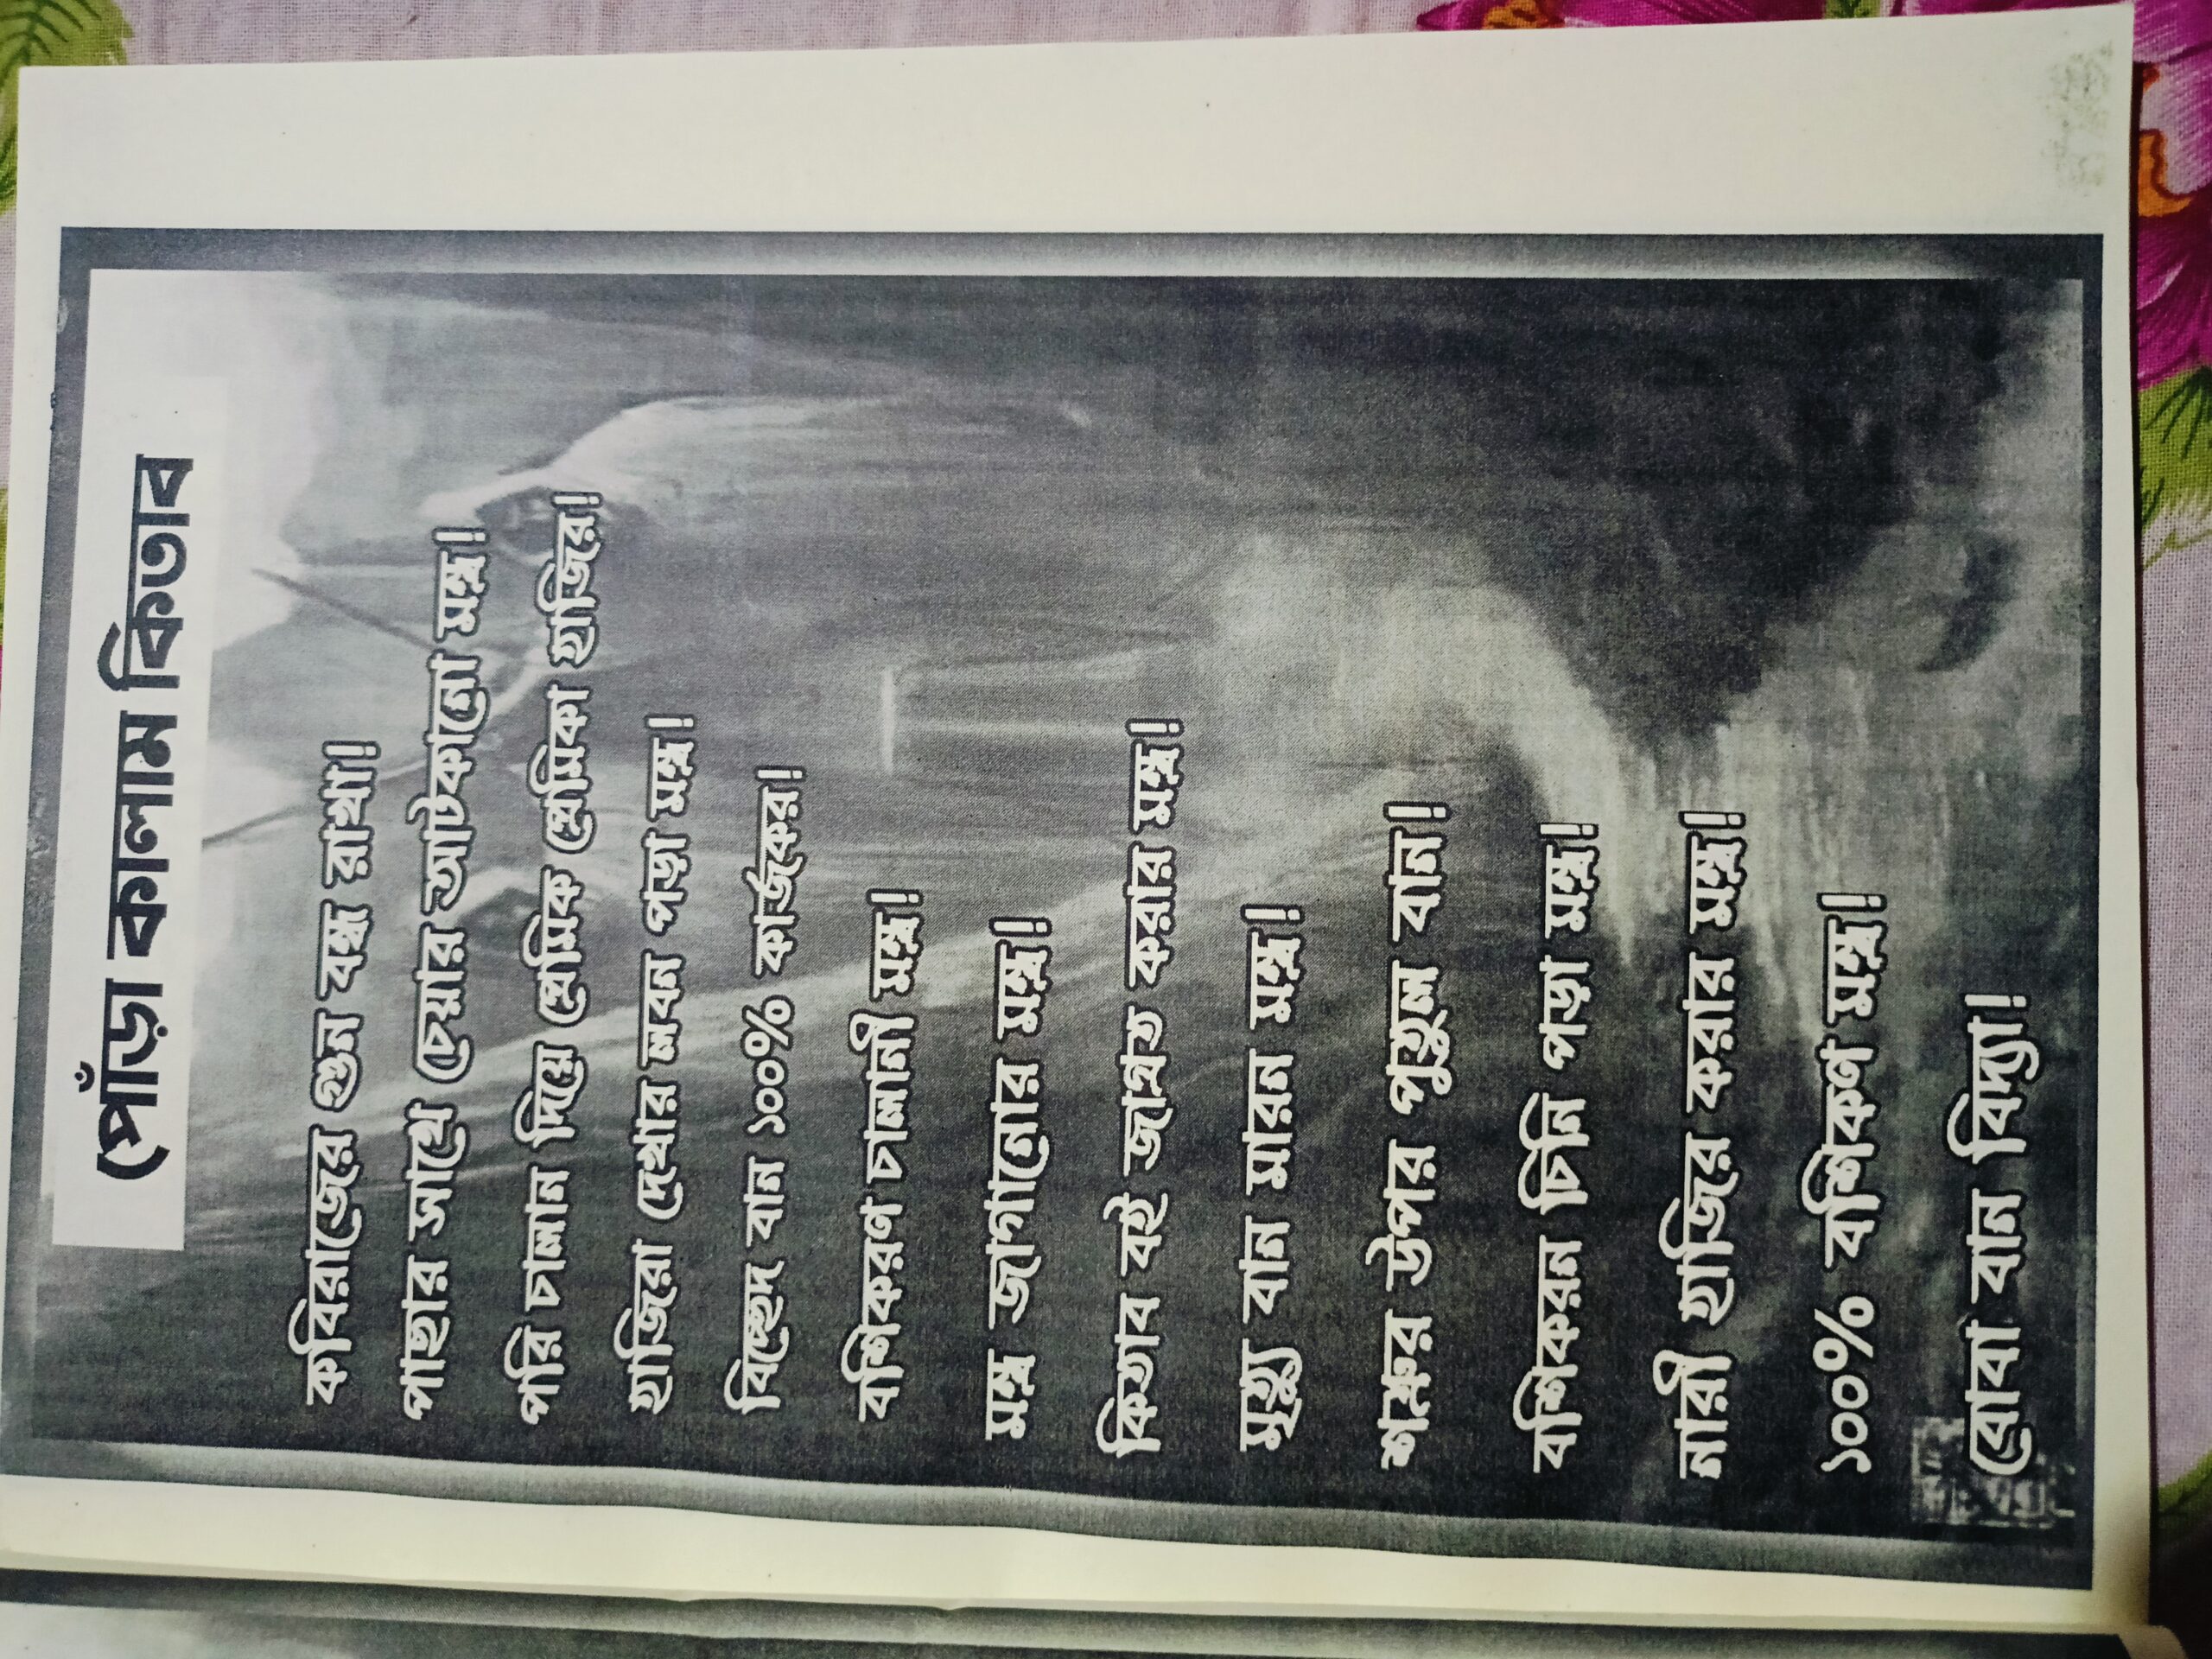 পোঁড়া কালাম কিতাব
কবিরাজের গুন বন্ধ রাখা!
পাছার সাথে চেয়ার আটকানো মন্ত্র!
পরি চালান দিয়ে প্রেমিক প্রেমিকা হাজির!
হাজিরা দেখার লবন পড়া মন্ত্র!
বিচ্ছেদ বান ১০০% কার্জকর!
বশিকরণ চালানী মন্ত্র!
মন্ত্র জাগানোর মন্ত্র!
কিতাব বই জাগ্রত করার মন্ত্র!
মৃত্যু বান মারন মন্ত্র!
শত্রুর উপর পুতুল বান!
বশিকরন চিনি পড়া মন্ত্র!
নারী হাজির করার মন্ত্র!
১০০% বশিকণ মন্ত্র!
বোবা বান বিদ্যা!